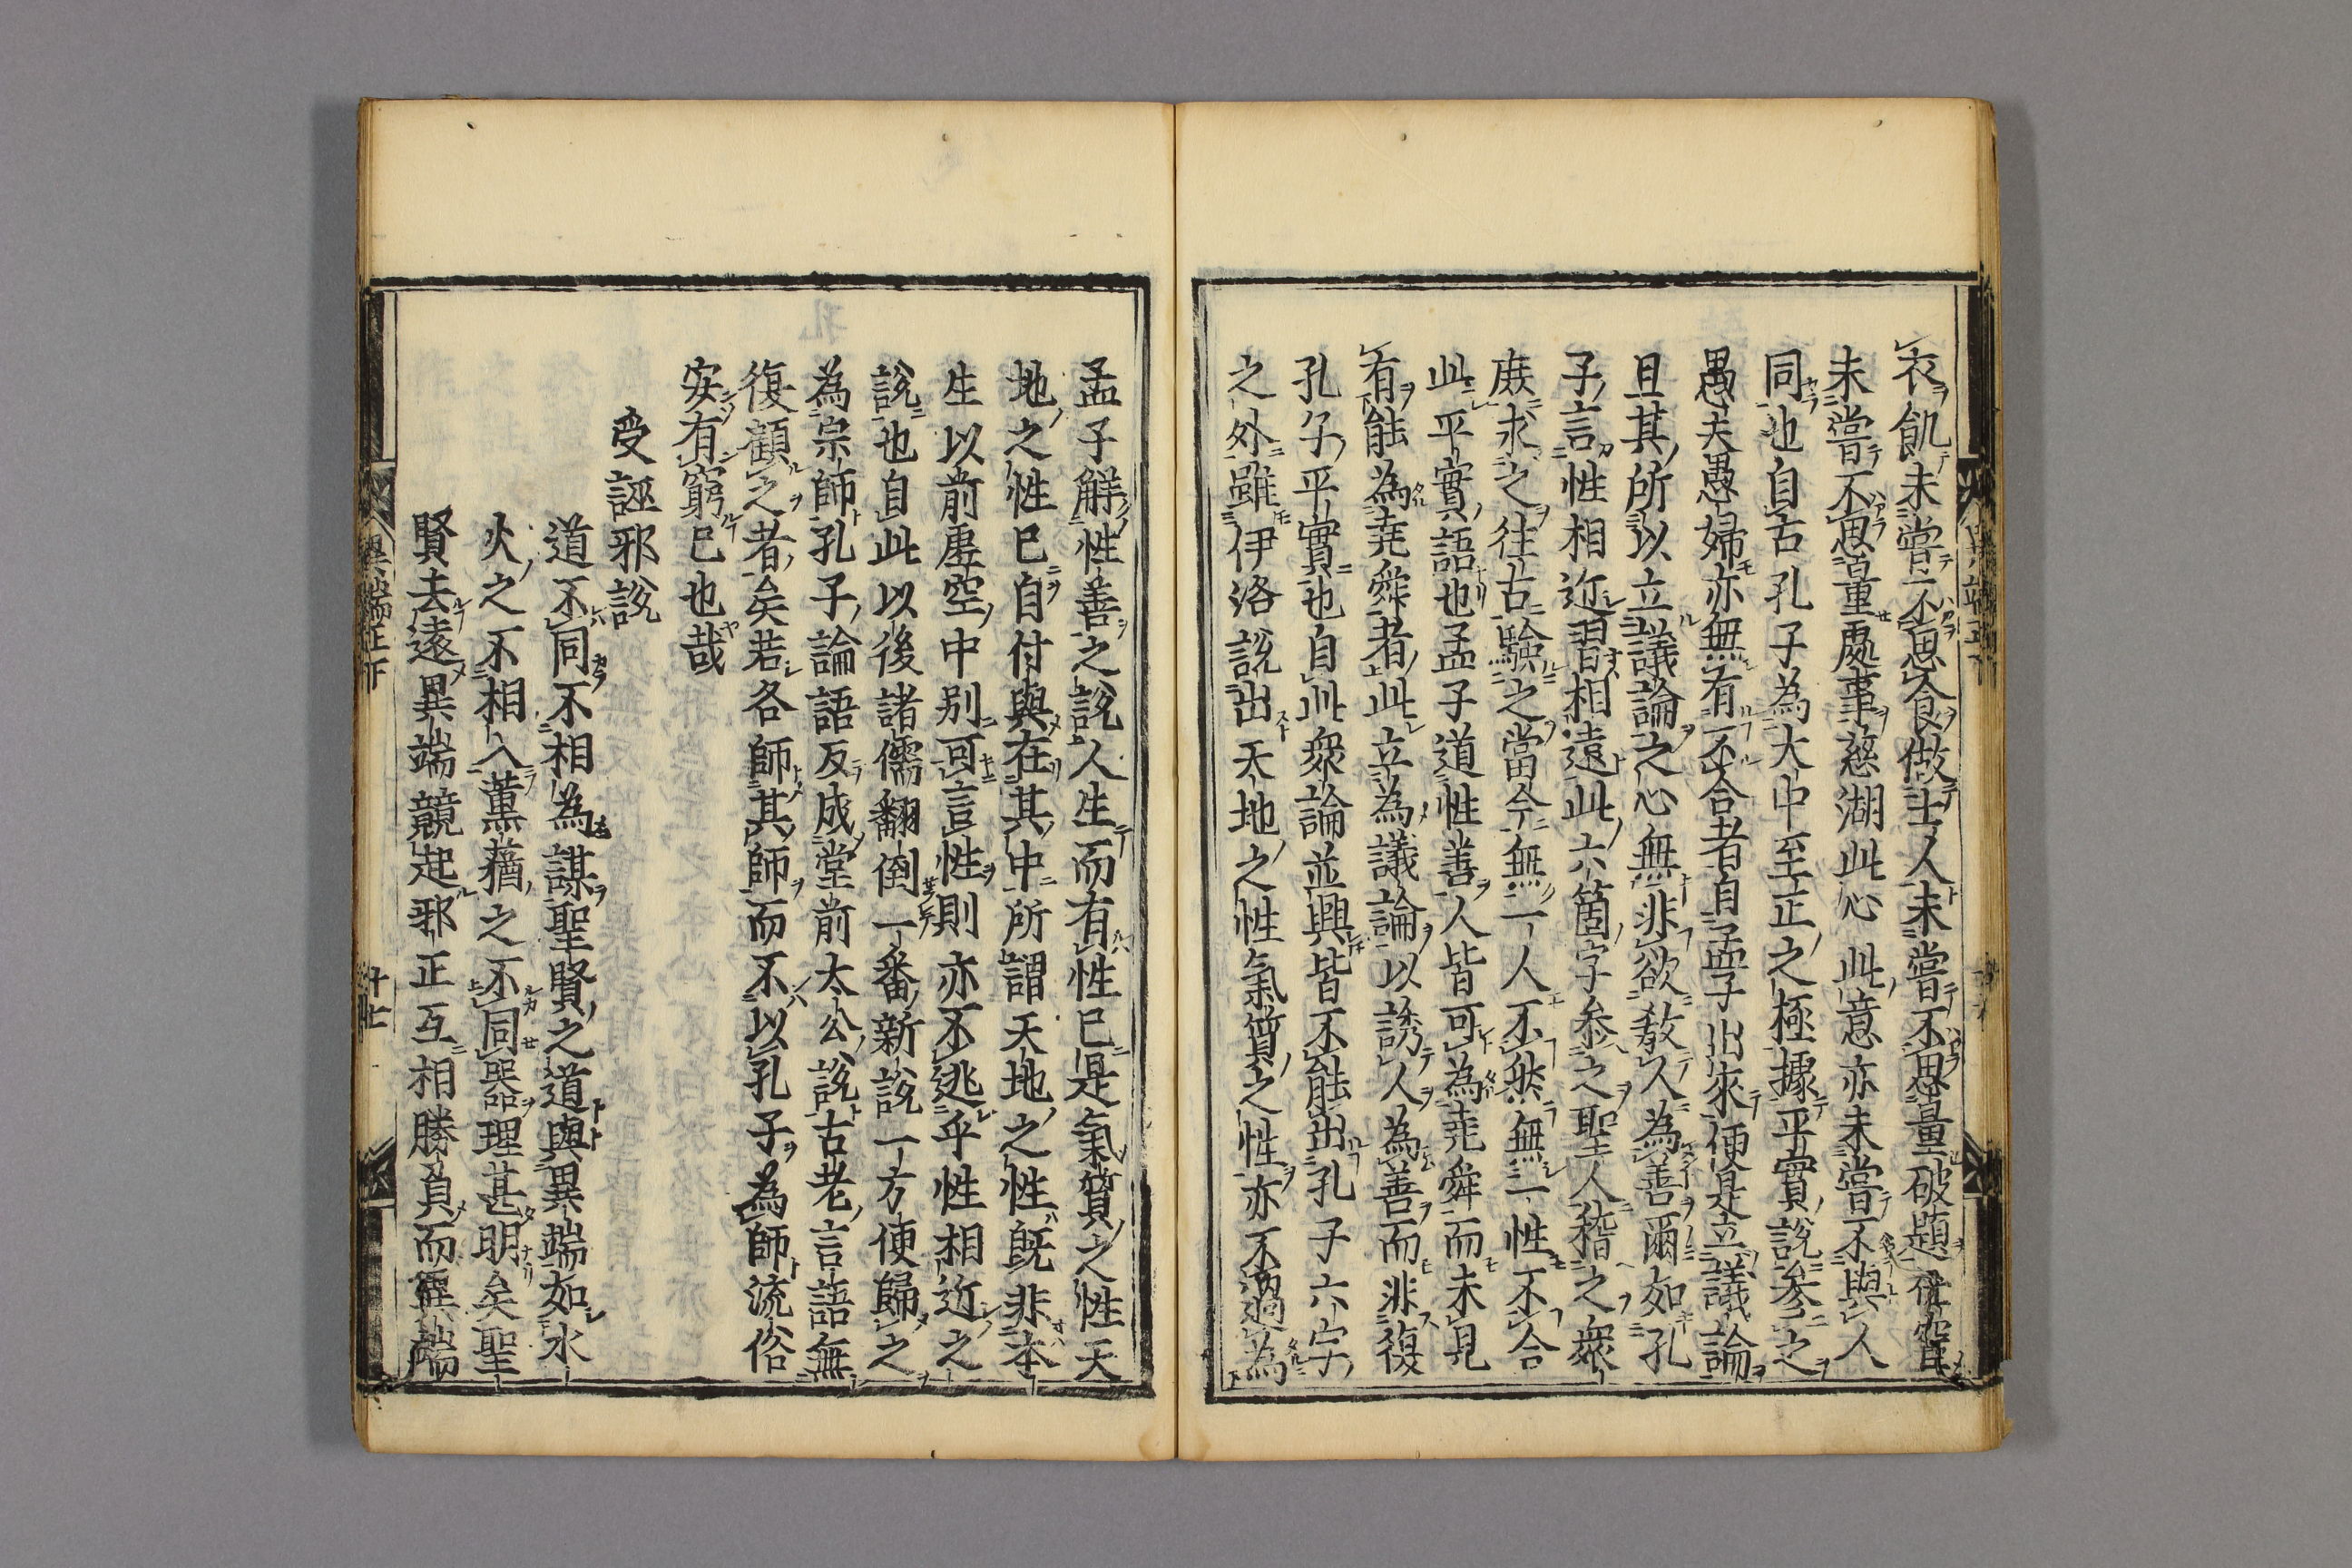 衣飢未嘗不思食做士人未嘗不思量破題在窓官
未嘗不思量處事慈湖此心此意亦未嘗不與人
同也自古孔子為大中至正之極據平實說參之
愚夫愚婦亦無有不合者自孟子出來便是立議論
且其所以立議論之心無非欲教人為善爾如孔
子言性相近習相遠此六箇字參之聖人稽之衆
庶求之往古驗之當今無一人不然無一性不合
此平實語也孟子道性善人皆可為堯舜而未見
有能為堯舜者此立為議論以誘人為善而非復
孔子平實也自此衆論並興皆不能出孔子六字
之外雖伊洛說出天地之性氣質之性亦不過為
孟子觧性善之說人生而有性已是氣質之性天
地之性已自付與在其中所謂天地之性既非本
生以前虚空中別可言性則亦不逃乎性相近之
說也自此以後諸儒翻倒一番新說一方便歸之
為宗師孔子論語反成堂前太公說古老言語無
復顧之者矣若各師其師而不以孔子為師流俗
安有窮已也哉
受誣邪說
道不同不相為謀聖賢之道與異端如水
火之不相入薰蕕之不同器理甚明矣聖
賢去遠異端競起邪正互相勝負而異端
異端正下
十七